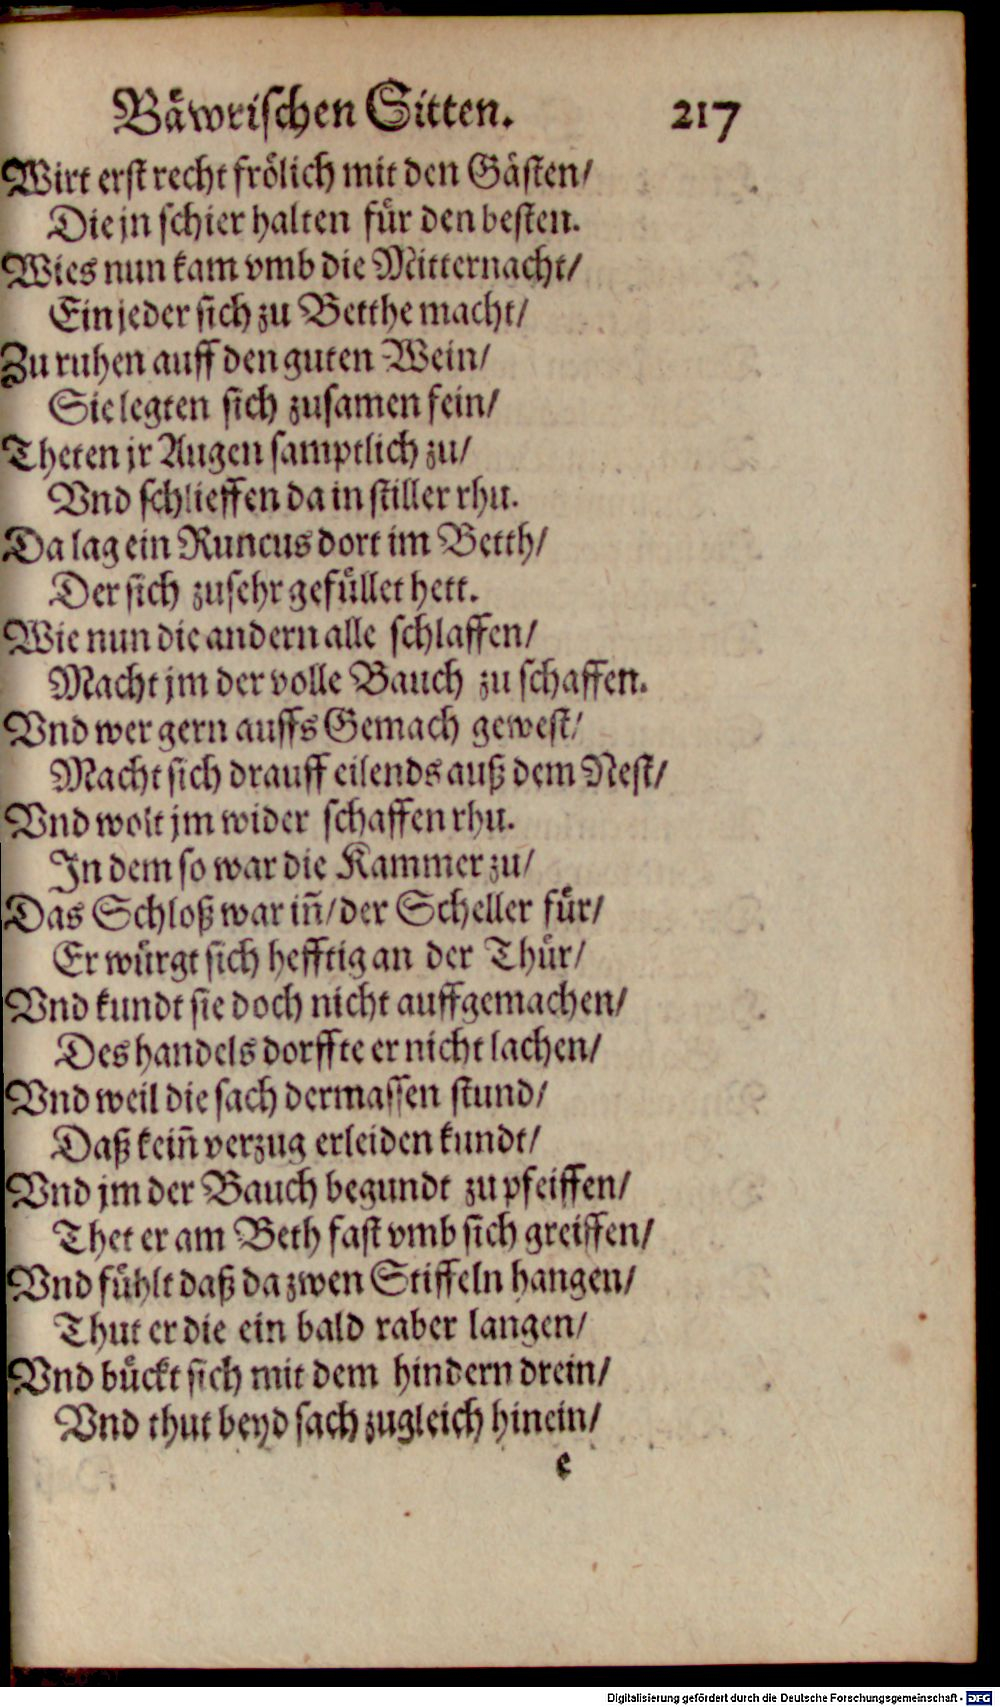 Bäwrischen Sitten. 217
Wirt erst recht frölich mit den Gästen/
Die jn schier halten für den besten.
Wies nun kam vmb die Mitternacht/
Ein jeder sich zu Betthe macht/
Zu ruhen auff den guten Wein/
Sie legten sich zusamen fein/
Theten jr Augen samptlich zu/
Vnd schlieffen da in stiller rhu.
Da lag ein Runcus dort im Betth/
Der sich zusehr gefüllet hett.
Wie nun die andern alle schlaffen/
Macht jm der volle Bauch zu schaffen.
Vnd wer gern auffs Gemach gewest/
Macht sich drauff eilends auß dem Nest/
Vnd wolt jm wider schaffen rhu.
In dem so war die Kammer zu/
Das Schloß war iñ/der Scheller für/
Er würgt sich hefftig an der Thür/
Vnd kundt sie doch nicht auffgemachen/
Des handels dorffte er nicht lachen/
Vnd weil die sach dermassen stund/
Daß keiñ verzug erleiden kundt/
Vnd jm der Bauch begundt zu pfeiffen/
Thet er am Beth fast vmb sich greiffen/
Vnd fühlt daß da zwen Stiffeln hangen/
Thut er die ein bald raber langen/
Vnd bückt sich mit dem hindern drein/
Vnd thut beyd sach zugleich hinein/
e
Digitalisierung gefördert durch die Deutsche Forschungsgemeinschaft - DFG